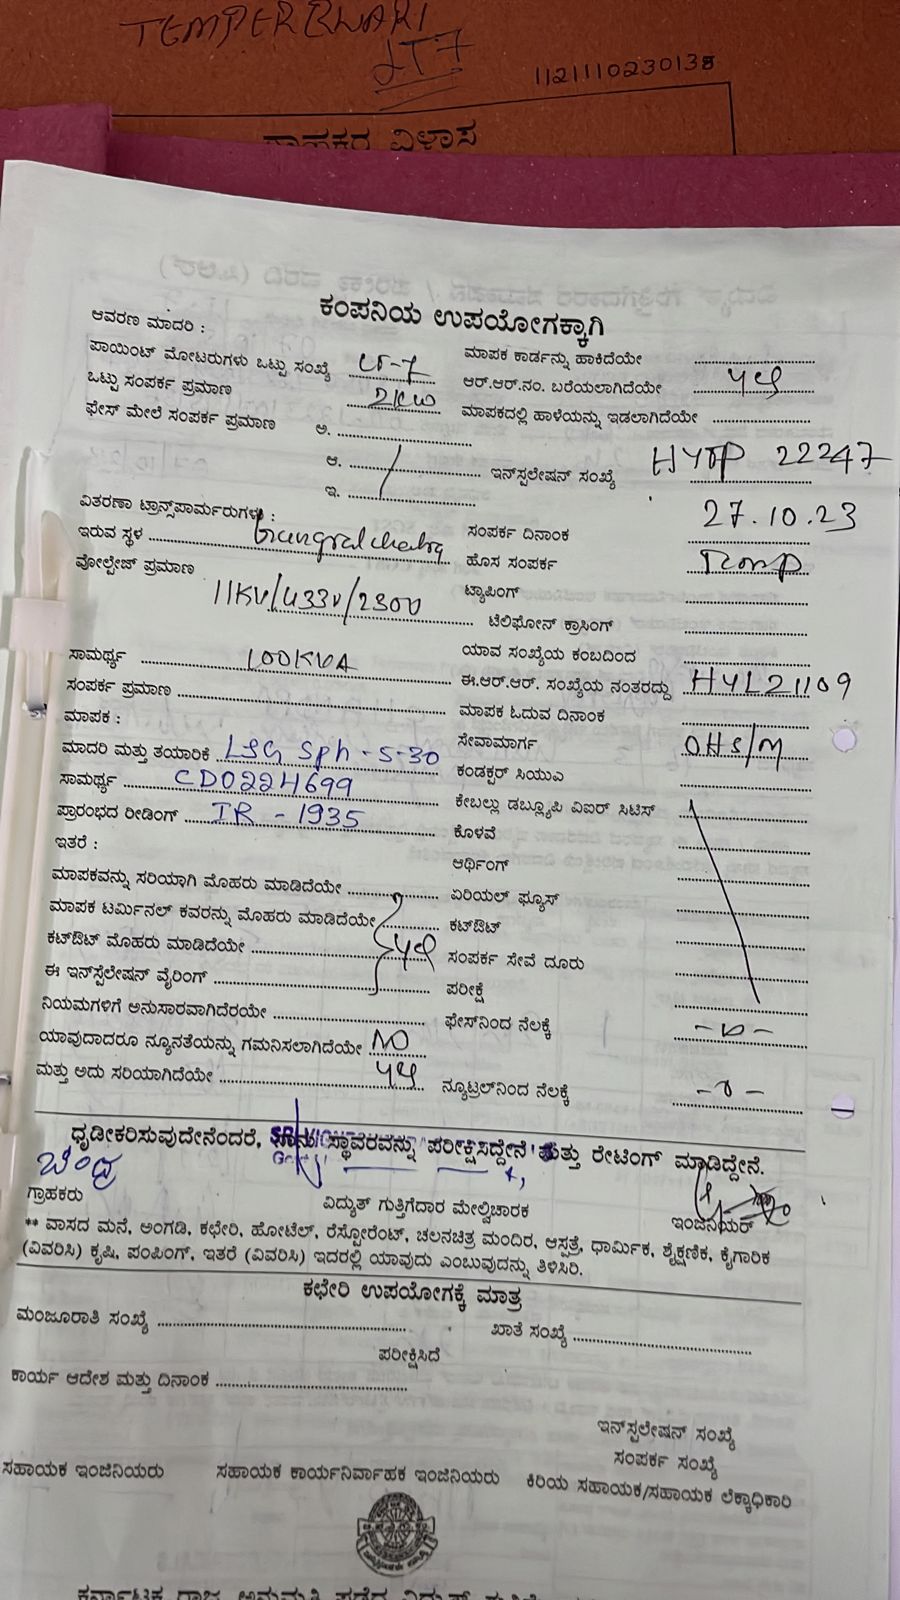 TEMPERBWARI
LT7
1121110230138
ಗ್ರಾಹಕರ ವಿಳಾಸ
ಕಂಪನಿಯ ಉಪಯೋಗಕ್ಕಾಗಿ
ಆವರಣ ಮಾದರಿ :
ಮಾಪಕ ಕಾರ್ಡನ್ನು ಹಾಕಿದೆಯೇ
ಪಾಯಿಂಟ್ ಮೋಟರುಗಳು ಒಟ್ಟು ಸಂಖ್ಯೆ LT-7
ಆರ್.ಆರ್.ನಂ. ಬರೆಯಲಾಗಿದೆಯೇ
ಒಟ್ಟು ಸಂಪರ್ಕ ಪ್ರಮಾಣ 2KW
ಮಾಪಕದಲ್ಲಿ ಹಾಳೆಯನ್ನು ಇಡಲಾಗಿದೆಯೇ
ಫೇಸ್ ಮೇಲೆ ಸಂಪರ್ಕ ಪ್ರಮಾಣ ಅ.
ಆ.
ಇನ್ಸ್ಟಲೇಷನ್ ಸಂಖ್ಯೆ HYTP 22247
ಇ.
ವಿತರಣಾ ಟ್ರಾನ್ಸ್‌ಪಾರ್ಮರುಗಳು :
ಸಂಪರ್ಕ ದಿನಾಂಕ 27.10.23
ಇರುವ ಸ್ಥಳ
ಹೊಸ ಸಂಪರ್ಕ
ವೋಲ್ಟೇಜ್ ಪ್ರಮಾಣ 11KV/433V/230V
ಟ್ಯಾಪಿಂಗ್
ಟೆಲಿಫೋನ್ ಕ್ರಾಸಿಂಗ್
ಸಾಮರ್ಥ್ಯ 100KVA
ಯಾವ ಸಂಖ್ಯೆಯ ಕಂಬದಿಂದ
ಸಂಪರ್ಕ ಪ್ರಮಾಣ
ಈ.ಆರ್.ಆರ್. ಸಂಖ್ಯೆಯ ನಂತರದ್ದು HYL21109
ಮಾಪಕ :
ಮಾಪಕ ಓದುವ ದಿನಾಂಕ
ಮಾದರಿ ಮತ್ತು ತಯಾರಿಕೆ L&G Sph - 5-30
ಸೇವಾಮಾರ್ಗ OHS/M
ಸಾಮರ್ಥ್ಯ CD0224699
ಕಂಡಕ್ಟರ್ ಸಿಯುವಿ
ಪ್ರಾರಂಭದ ರೀಡಿಂಗ್ IR - 1935
ಕೇಬಲ್ಲು ಡಬ್ಲ್ಯೂಪಿ ವಿಐರ್ ಸಿಟಿಸ್
ಇತರೆ :
ಕೊಳವೆ
ಆರ್ಥಿಂಗ್
ಮಾಪಕವನ್ನು ಸರಿಯಾಗಿ ಮೊಹರು ಮಾಡಿದೆಯೇ
ಏರಿಯಲ್ ಫ್ಯೂಸ್
ಮಾಪಕ ಟರ್ಮಿನಲ್ ಕವರನ್ನು ಮೊಹರು ಮಾಡಿದೆಯೇ
ಕಟ್‌ಔಟ್
ಕಟ್‌ಔಟ್ ಮೊಹರು ಮಾಡಿದೆಯೇ
ಸಂಪರ್ಕ ಸೇವೆ ದೂರು
ಈ ಇನ್‌ಸ್ಟಲೇಷನ್ ವೈರಿಂಗ್
ಪರೀಕ್ಷೆ
ನಿಯಮಗಳಿಗೆ ಅನುಸಾರವಾಗಿದೆರಯೇ
ಫೇಸ್‌ನಿಂದ ನೆಲಕ್ಕೆ
ಯಾವುದಾದರೂ ನ್ಯೂನತೆಯನ್ನು ಗಮನಿಸಲಾಗಿದೆಯೇ NO
ಮತ್ತು ಅದು ಸರಿಯಾಗಿದೆಯೇ
ನ್ಯೂಟ್ರಲ್‌ನಿಂದ ನೆಲಕ್ಕೆ
ಧೃಡೀಕರಿಸುವುದೇನೆಂದರೆ, ನಾನು ಸ್ಥಾವರವನ್ನು ಪರೀಕ್ಷಿಸಿದ್ದೇನೆ ಮತ್ತು ರೇಟಿಂಗ್ ಮಾಡಿದ್ದೇನೆ.
ಗ್ರಾಹಕರು
ವಿದ್ಯುತ್ ಗುತ್ತಿಗೆದಾರ ಮೇಲ್ವಿಚಾರಕ
ಇಂಜಿನಿಯರ್
** ವಾಸದ ಮನೆ, ಅಂಗಡಿ, ಕಛೇರಿ, ಹೋಟೆಲ್, ರೆಸ್ಟೋರೆಂಟ್, ಚಲನಚಿತ್ರ ಮಂದಿರ, ಆಸ್ಪತ್ರೆ, ಧಾರ್ಮಿಕ, ಶೈಕ್ಷಣಿಕ, ಕೈಗಾರಿಕ
(ವಿವರಿಸಿ) ಕೃಷಿ, ಪಂಪಿಂಗ್, ಇತರೆ (ವಿವರಿಸಿ) ಇದರಲ್ಲಿ ಯಾವುದು ಎಂಬುವುದನ್ನು ತಿಳಿಸಿರಿ.
ಕಛೇರಿ ಉಪಯೋಗಕ್ಕೆ ಮಾತ್ರ
ಮಂಜೂರಾತಿ ಸಂಖ್ಯೆ
ಖಾತೆ ಸಂಖ್ಯೆ
ಪರೀಕ್ಷಿಸಿದೆ
ಕಾರ್ಯ ಆದೇಶ ಮತ್ತು ದಿನಾಂಕ
ಇನ್‌ಸ್ಟಲೇಷನ್ ಸಂಖ್ಯೆ
ಸಂಪರ್ಕ ಸಂಖ್ಯೆ
ಸಹಾಯಕ ಇಂಜಿನಿಯರು
ಸಹಾಯಕ ಕಾರ್ಯನಿರ್ವಾಹಕ ಇಂಜಿನಿಯರು
ಕಿರಿಯ ಸಹಾಯಕ/ಸಹಾಯಕ ಲೆಕ್ಕಾಧಿಕಾರಿ